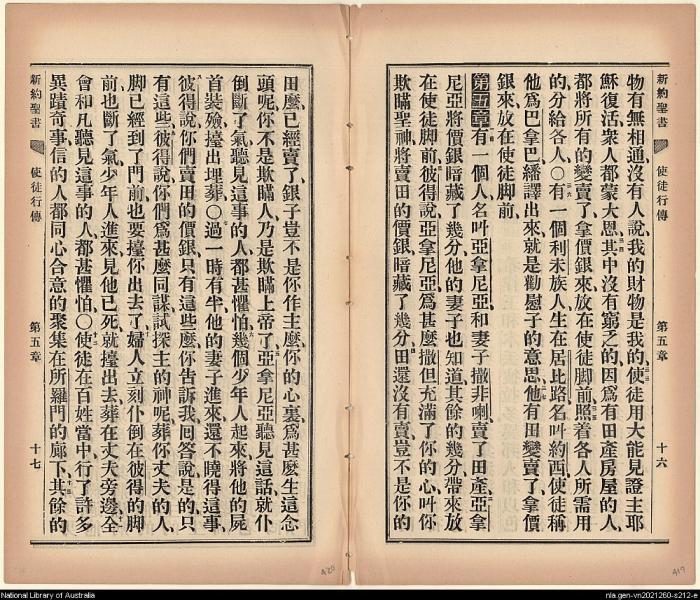 新約聖書 使徒行傳 第五章 十六
物有無相通、沒有人說、我的財物是我的、使徒用大能見證主耶
穌復活、衆人都蒙大恩、其中沒有窮乏的、因爲有田產房屋的人、
都將所有的變賣了、拿價銀來放在使徒脚前、照着各人所需用
的分給各人、○有一個利未族人、生在居比路、名叫約西、使徒稱
他爲巴拿巴、繙譯出來、就是勸慰子的意思、他有田變賣了、拿價
銀來放在使徒脚前、
第五章 有一個人名叫亞拿尼亞、和妻子撒非喇、賣了田產、亞拿
尼亞將價銀暗藏了幾分、他的妻子也知道、其餘的幾分帶來放
在使徒脚前、彼得說、亞拿尼亞爲甚麼撒但充滿了你的心、叫你
欺瞞聖神、將賣田的價銀、暗藏了幾分、田還沒有賣、豈不是你的
田麼、已經賣了、銀子豈不是你作主麼、你的心裏爲甚麼生這念
頭呢、你不是欺瞞人、乃是欺瞞上帝了、亞拿尼亞聽見這話、就仆
倒斷了氣、聽見這事的人、都甚懼怕、幾個少年人起來、將他的屍
首裝殮擡出埋葬、○過一時有半、他的妻子進來、還不曉得這事、
彼得說、你們賣田的價銀、只有這些麼、你告訴我、回答說、是的、只
有這些、彼得說、你們爲甚麼同謀試探主的神呢、葬你丈夫的人、
脚已經到了門前、也要擡你出去了、婦人立刻仆倒在彼得的脚
前、也斷了氣、少年人進來、見他已死、就擡出去、葬在丈夫旁邊、全
會和凡聽見這事的人、都甚懼怕、○使徒在百姓當中、行了許多
異蹟奇事、信的人都同心合意的聚集在所羅門的廊下、其餘的
新約聖書 使徒行傳 第五章 十七
420
419
National Library of Australia
nla.gen-vn2021260-s212-e